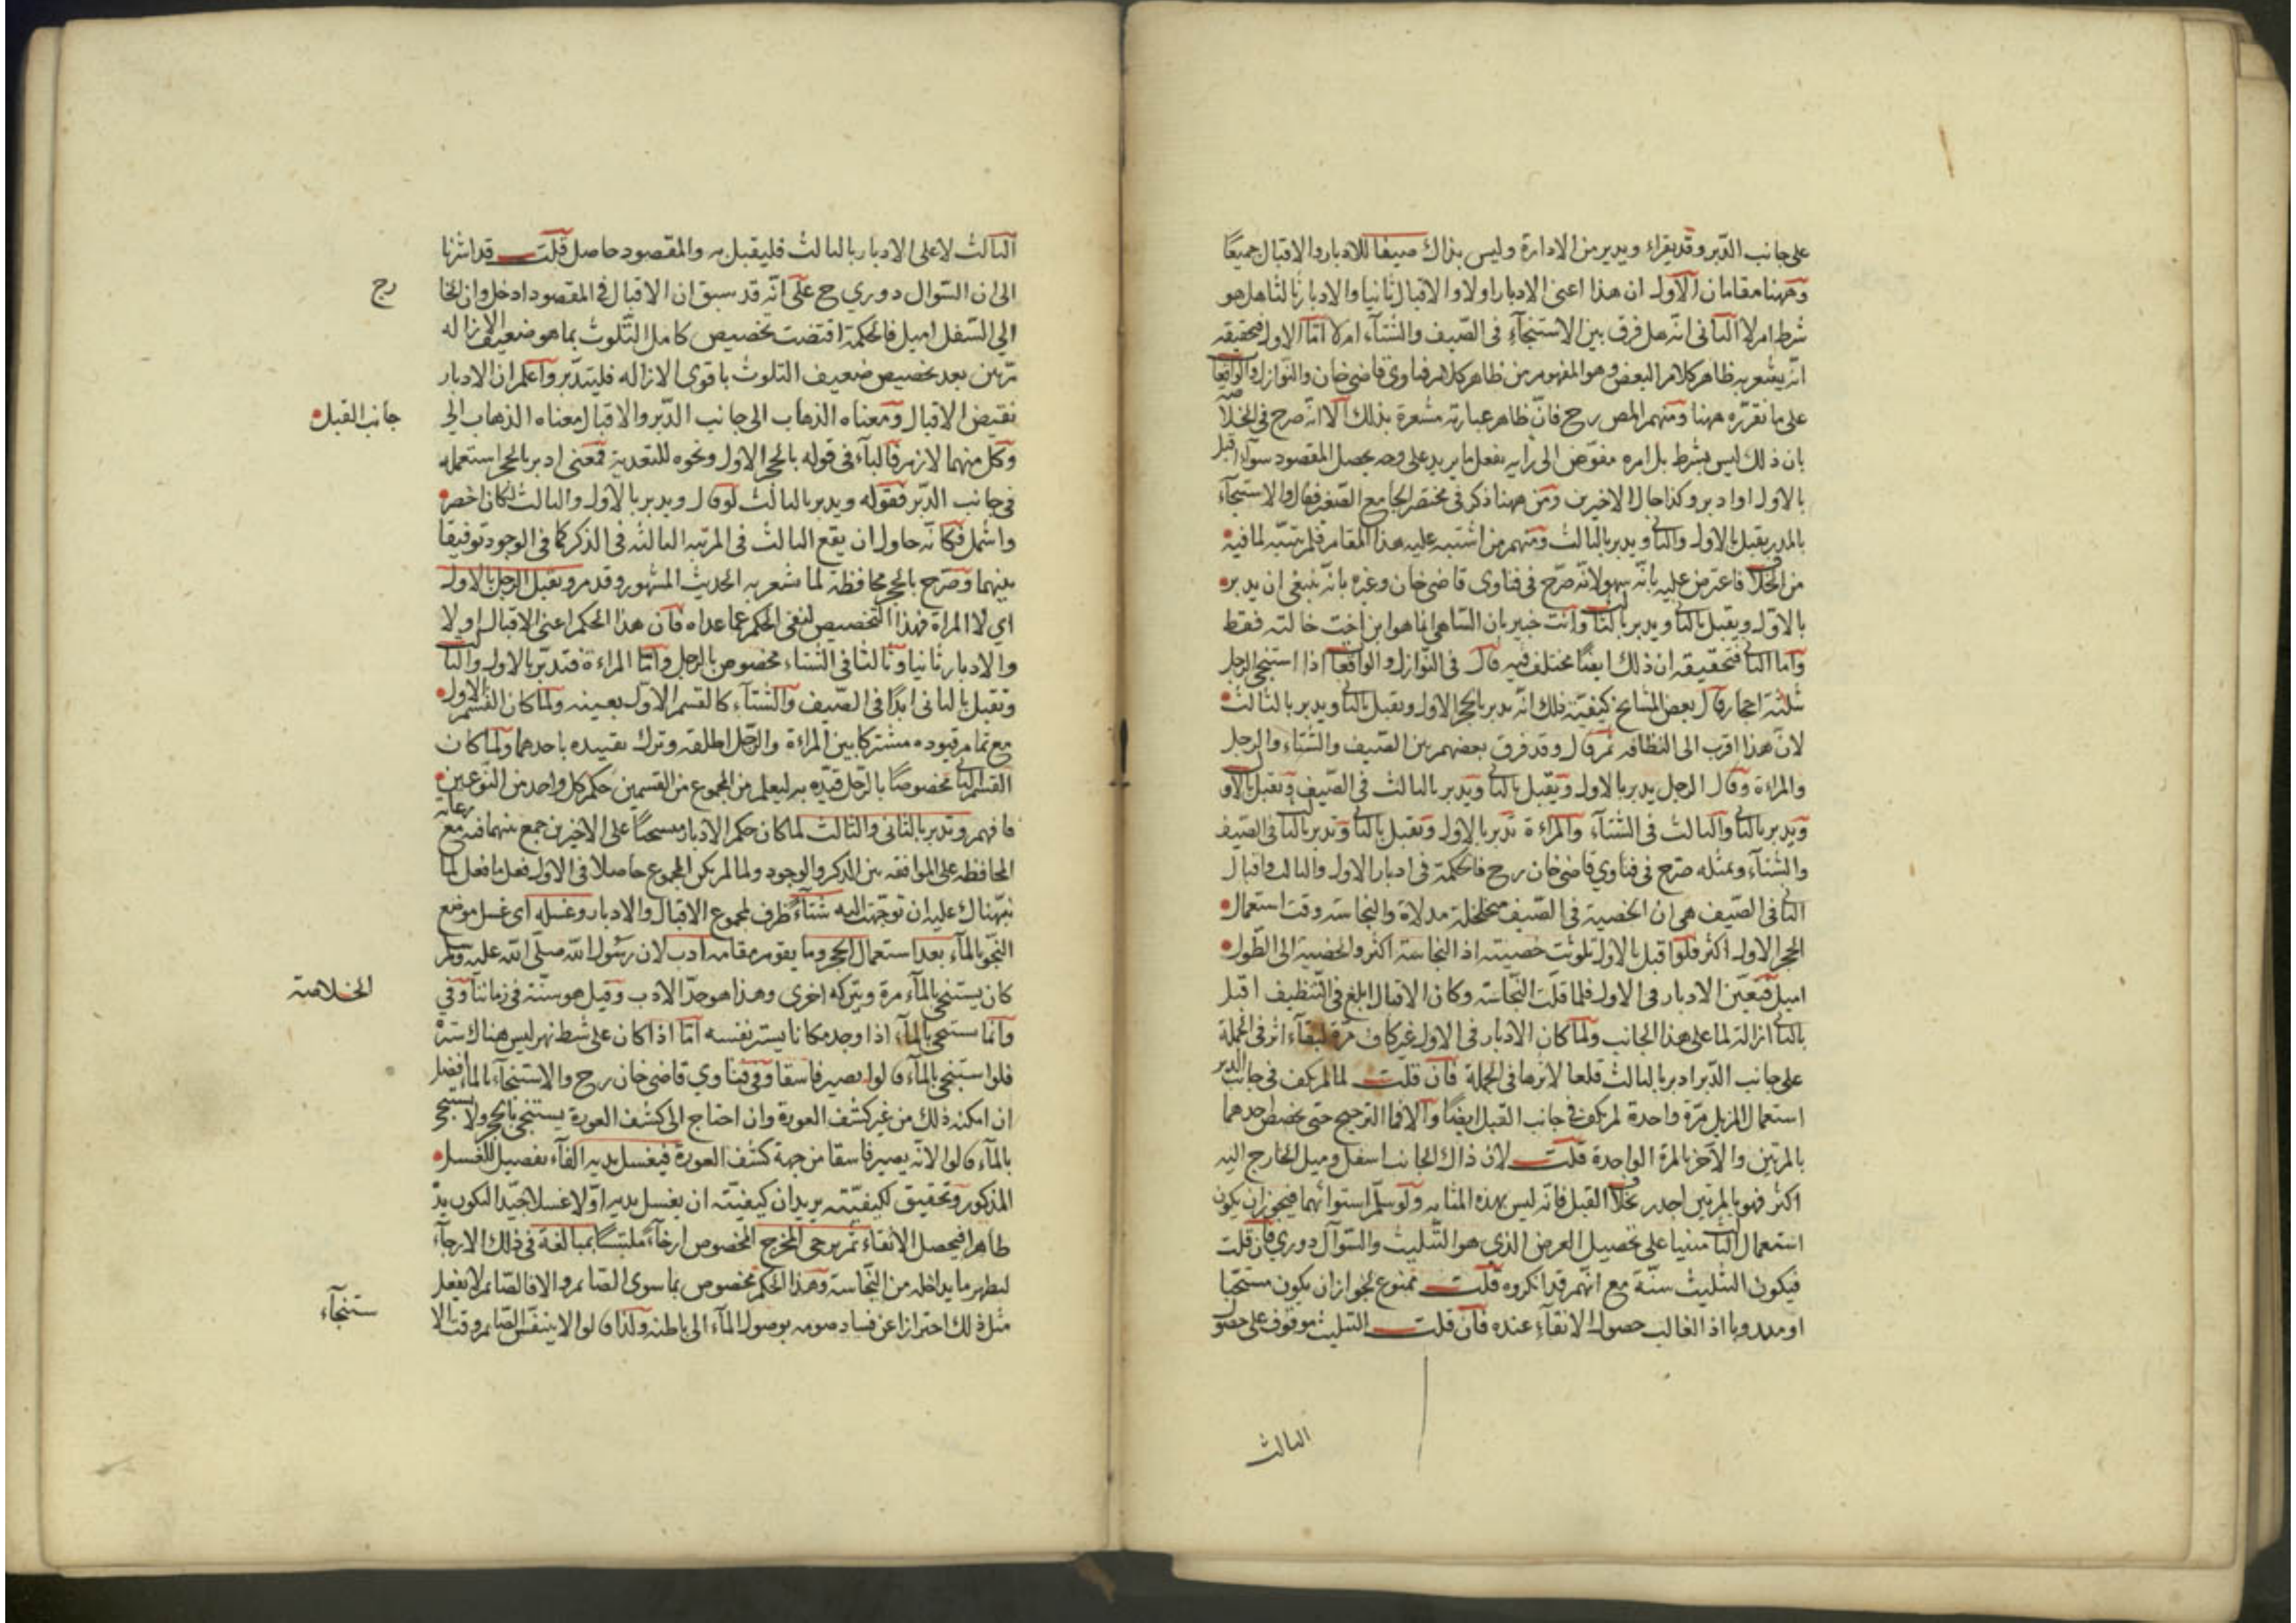 على جانب الدبر وقد يقراء ويدير من الادارة وليس بذاك صيفا للادبار والاقبال جميعا
وههنا مقامان الاول ان هذا اعنى الادبار اولا والاقبال ثانيا والادبار ثالثا هل هو
شرط ام لا الثانى انه هل فرق بين الاستنجآء فى الصيف والشتآء ام لا اما الاول فتحقيقه
انه يشعر به ظاهر كلام البعض وهو المفهوم من ظاهر كلام فتاوى قاضى خان والنوازل والواقعا
على ما نقرره ههنا ومنهم المص رح فان ظاهر عبارته مشعرة بذلك الا انه صرح فى الخلا صته
بان ذلك ليس بشرط بل امره مفوض الى رايه يفعل ما يريد على وجه يحصل المقصود سواء اقبل
بالاول او ادبر وكذا حال الاخيرين ومن ههنا ذكر فى مختصر الجامع الصغير فقال والاستنجآء
بالمدر يقبل بالاول والثانى ويدبر بالثالث ومنهم من اشتبه عليه هذا المقام فلم يتنبه لما فيه
من الخلاف فاعترض عليه بانه سهو لانه صرح فى فتاوى قاضى خان وغيره بانه ينبغى ان يدبر
بالاول ويقبل بالثانى ويدبر بالثالث وانت خبير بان الساهى انما هو ابن اخت خالته فقط
واما الثانى فتحقيقه ان ذلك ايضا مختلف فيه قال فى النوازل والواقعا اذا استنجى الرجل
بثلثة احجار قال بعض المشايخ كيفية ذلك انه يدبر بالحجر الاول ويقبل بالثانى ويدبر بالثالث
لان هذا اقرب الى النظافه ثم قال وقد فرق بعضهم بين الصيف والشتاء والرجل
والمراءة وقال الرجل يدبر بالاول ويقبل بالثانى ويدبر بالثالث فى الصيف ويقبل بالاول
ويدبر بالثانى والثالث فى الشتآء والمراءة تدبر بالاول وتقبل بالثانى وتدبر بالثالث فى الصيف
والشتآء وبمثله صرح فى فتاوي قاضى خان رح فالحكمة فى ادبار الاول والثالث واقبال
الثانى فى الصيف هى ان الخصية فى الصيف متخلخلة مدلاة والنجاسة وقت استعمال
الحجر الاول اكثر فلو اقبل بالاول تلوثت خصيته اذ النجاسة اكثر والخصية الى الطول
اميل فيعين الادبار فى الاول فلما قلت النجاسة وكان الاقبال ابلغ فى التنظيف اقبل
بالثانى ازالة لما على هذا الجانب ولما كان الادبار فى الاول غير كاف مرة لبقآء اثر فى الجملة
على جانب الدبر ادبر بالثالث قلعا لاثرها فى الجملة فان قلت لما لم يكف فى جانب الدبر
استعمال المزيل مرة واحدة لم يكف فى جانب القبل ايضا والا فما الترجيح حتى يخص احدهما
بالمرتين والآخر بالمرة الواحدة قلت لان ذاك الجانب اسفل وميل الخارج اليه
اكثر فهو بالمرتين اجدر بخلاف القبل فانه ليس بهذه المثابه ولو سلم استوائهما فيجوز ان يكون
استعمال الثالث مبنيا على تحصيل العرض الذي هو التثليث والسوآل دوري فان قلت
فيكون التثليث سنة مع انهم قد انكروه قلت ممنوع لجواز ان يكون مستحبا
او مندوبا اذ الغالب حصول الانقآء عنده فان قلت التثليث موقوف على حصول
الثالث
الثالث لا على الادبار بالثالث فليقبل به والمقصود حاصل قلت قد اشرنا
الى ان السوال دوري ح على انه قد سبق ان الاقبال فى المقصود ادخل وان الخا
رج
الى السفل اميل فالحكمة اقتضت تخصيص كامل التلوث بما هو ضعيف الازاله
مرتين بعد تخصيص ضعيف التلوث باقوى الازاله فليتدبر واعلم ان الادبار
نقيض الاقبال ومعناه الذهاب الى جانب الدبر والاقبال معناه الذهاب الى
جانب القبل
وكل منهما لازم فالبآء فى قوله بالحجر الاول ونحوه للتعدية فمعنى ادبر بالحجر استعمله
فى جانب الدبر فقوله ويدبر بالثالث لو قال ويدبر بالاول والثالث لكان اخصر
واشمل فكانه حاول ان يقع الثالث فى المرتبه الثالثه فى الذكر كما فى الوجود توفيقا
بينهما وصرح بالحجر محافظة لما شعر به الحديث المشهور وقد مر ويقبل الرجل بالاول
اي لا المراة فهذا التخصيص لنفى الحكم عما عداه فان هذا الحكم اعنى الاقبال اولا
والادبار ثانيا وثالثا فى الشتاء مخصوص بالرجل واما المراءة فتدبر بالاول والثالث
وتقبل بالثانى ابدا فى الصيف والشتآء كالقسم الاول بعينه ولما كان القسم الاول
مع تمام قيوده مشتركا بين المراءة والرجل اطلقه وترك تقييده باحدهما ولما كان
القسم الثانى مخصوصا بالرجل قيده به ليعلم من المجموع من القسمين حكم كل واحد من النوعين
فافهم وتدبر بالثانى والثالث لما كان حكم الادبار منسحبا على الاخيرين جمع بينهما فيه مع رعاية
المحافظه على الموافقه بين الذكر والوجود ولما لم يكن المجموع حاصلا فى الاول فعل ما فعل لما
نبهناك عليه ان توجهت اليه شتآء ظرف لمجموع الاقبال والادبار وغسله اى غسل موضع
النجو بالمآء بعد استعمال الحجر وما يقوم مقامه ادب لان رسول الله صلى الله عليه وسلم
كان يستنجى بالمآء مرة ويتركه اخرى وهذا هو حد الادب وقيل هو سنة فى زماننا وفى
الخلاصة
وانما يستنجى بالمآء اذا وجد مكانا يستر نفسه اما اذا كان على شط نهر ليس هناك سترة
فلو استنجى بالمآء قالوا يصير فاسقا وفى فتاوي قاضى خان رح والاستنجآء بالمآء افضل
ان امكنه ذلك من غير كشف العورة وان احتاج الى كشف العورة يستنجى بالحجر ولا يستنجى
بالمآء قالوا لانه يصير فاسقا من جهة كشف العورة فيغسل يديه الفآء تفصيل للغسل
المذكور وتحقيق لكيفيته يريد ان كيفيته ان يغسل يديه اولا غسلا جيدا لتكون يد
طاهرا فيحصل الانقاء ثم يرخى المخرج المخصوص ارخآء ملتبسا بمبالغة فى ذلك الارخآء
ليطهر ما يداخله من النجاسة وهذا الحكم مخصوص بما سوى الصائم والا فالصائم لا يفعل
مثل ذلك احترازا عن فساد صومه بوصول المآء الى باطنه ولذا قالوا لا يتنفس الصائم وقت الا
ستنجآء